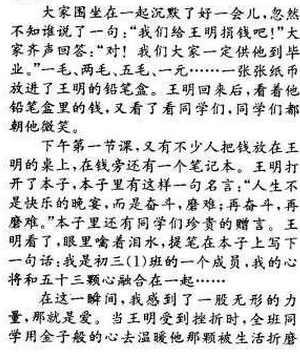 大家围坐在一起沉默了好一会儿,忽然
不知谁说了一句:“我们给王明捐钱吧!”大
家齐声回答:“对!我们大家一定供他到毕
业。”一毛、两毛、五毛、一元……一张张纸币
放进了王明的铅笔盒。王明回来后,看着他
铅笔盒里的钱,又看了看同学们,同学们都
朝他微笑。
下午第一节课,又有不少人把钱放在王
明的桌上,在钱旁还有一个笔记本。王明打
开了本子,本子里有这样一句名言:“人生不
是快乐的晚宴,而是奋斗,磨难;再奋斗,再
磨难。”本子里还有同学们珍贵的赠言。王
明看了,眼里噙着泪水,提笔在本子上写下
一句话:我是初三(1)班的一个成员,我的心
将和五十三颗心融合在一起……
在这一瞬间,我感到了一股无形的力
量,那就是爱。当王明受到挫折时,全班同
学用金子般的心去温暖他那颗被生活折磨